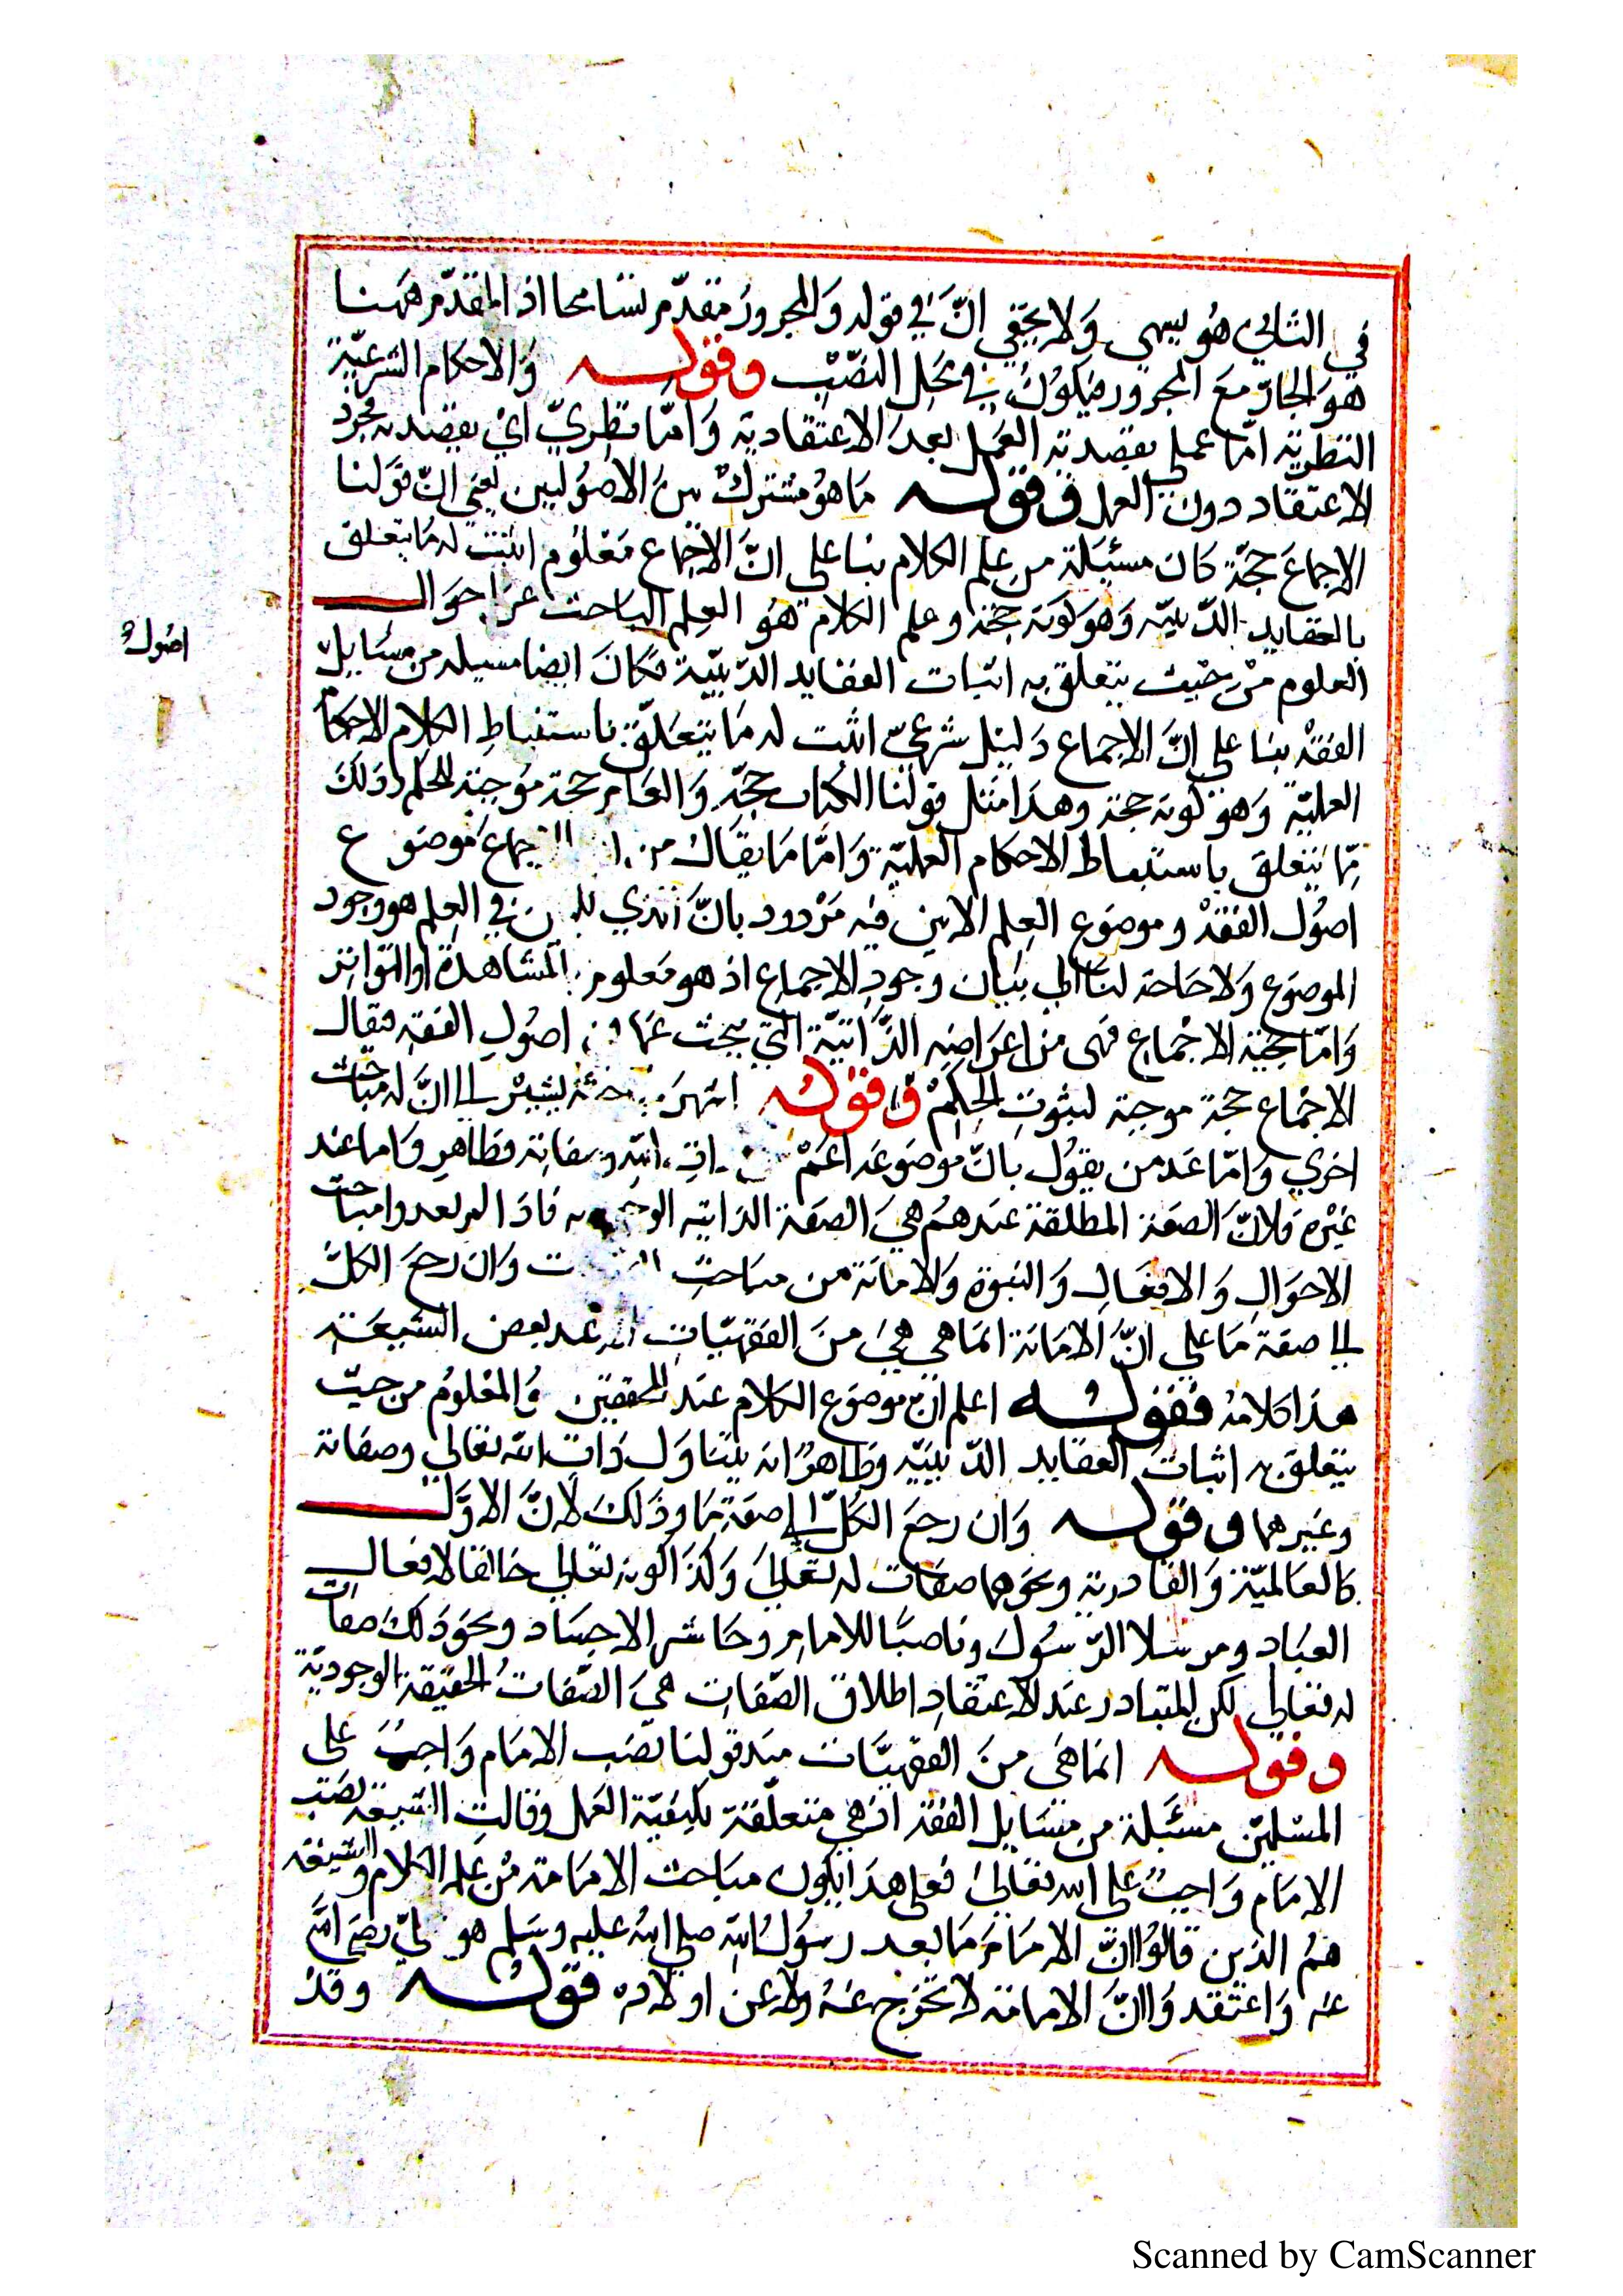 في الثاني هو ليسهي ولا يخفي انّ في قوله والمجرور مقدّم تسامحا اذ المقدّم ههنا
هو الجارّ مع المجرور فيكون في محل النصب وقوله والاحكام الشرعيّة
النظرية امّا عملي يقصد به العمل بعد الاعتقادية وامّا نظريّ اي يقصد به مجرد
الاعتقاد دون العمل وقوله ما هو مشترك بين الاصوليين يعني انّ قولنا
الاجماع حجّة كان مسئلة من علم الكلام بنا على انّ الاجماع معلوم اثبت له ما يتعلق
بالعقايد الدّينيّه وهو كونه حجة وعلم الكلام هو العلم الباحث عن احوال
العلوم من حيث يتعلق به اثبات العقايد الدينيّة فكان ايضا مسيله من مسايل
اصول
الفقه بنا على انّ الاجماع دليل شرعيّ اثبت له ما يتعلّق باستنباط الكلام الاحكام
العمليّة وهو كونه حجة وهذا مثل قولنا الكتاب حجّة والعام حجة موجبة للحكم وذلك
ممّا يتعلق باستنباط الاحكام العمليّة وامّا ما يقال من الاجماع موضوع
اصول الفقه وموضوع العلم لا يبين فيه مردود بانّ الذي لا يبين في العلم هو وجود
الموضوع ولا حاجة لنا الي بيان وجود الاجماع اذ هو معلوم بالمشاهدة او التواتر
وامّا حجية الاجماع فهي من اعراضه الذّاتيّة التي يبحث عنها في اصول الفقه فيقال
الاجماع حجة موجبة لثبوت الحكم وقوله اشهر مباحثه يشير الي انّ له مباحث
اخري وامّا عند من يقول بانّ موضوعه اعمّ من ذات الله وصفاته فظاهر واما عند
غيره فلانّ الصفة المطلقة عندهم هي الصفة الذاتيه الوجوديه فاذا لم يعدوا مباحث
الاحوال والافعال والنبوة والامامة من مباحث الصفات وان رجع الكلّ
الي صفة ما علي انّ الامامة انما هي من الفقهيّات الا عند بعض الشيعة
هذا كلامه فقوله اعلم انّ موضوع الكلام عند المحققين والمعلوم من حيث
يتعلق به اثبات العقايد الدّينيّه وظاهر انه يتناول ذات الله تعالي وصفاته
وغيرهما وقوله وان رجع الكلّ الي صفة ما وذلك لانّ الاوّل
كالعالميّة والقادرية ونحوهما صفات له تعالي وكذا كونه تعالي خالقا لافعال
العباد ومرسلا الرّسول وناصبا للامام وحاشر الاجساد ونحو ذلك صفات
له تعالي لكن المتبادر عند الاعتقاد اطلاق الصّفات هي الصّفات الحقيقة الوجوديّة
وقوله انما هي من الفقهيّات عند قولنا نصب الامام واجب على
المسلمين مسئلة من مسايل الفقه اذ هي متعلّقة بكيفيّة العمل وقالت الشيعة نصب
الامام واجب على الله تعالى فعلى هذا يكون مباحث الامامة من علم الكلام والشيعة
هم الذين قالوا انّ الامام ما بعد رسول الله صلى الله عليه وسلم هو عليّ رضي الله
عنه واعتقدوا انّ الامامة لا تخرج عنه ولا عن اولاده فقوله وقد
Scanned by CamScanner